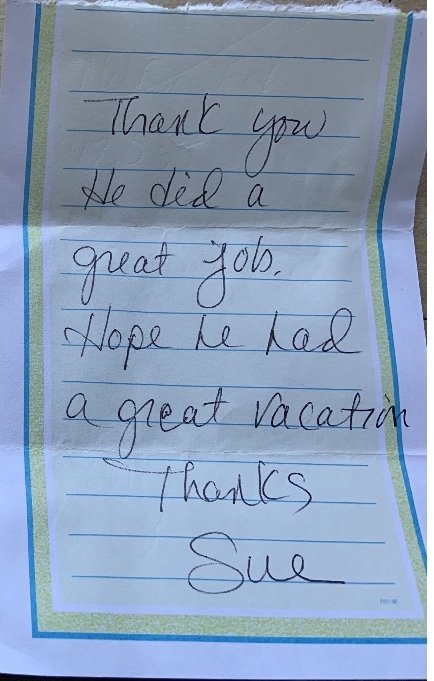 Thank you
He did a
great job.
Hope he had
a great vacation
Thanks
Sue